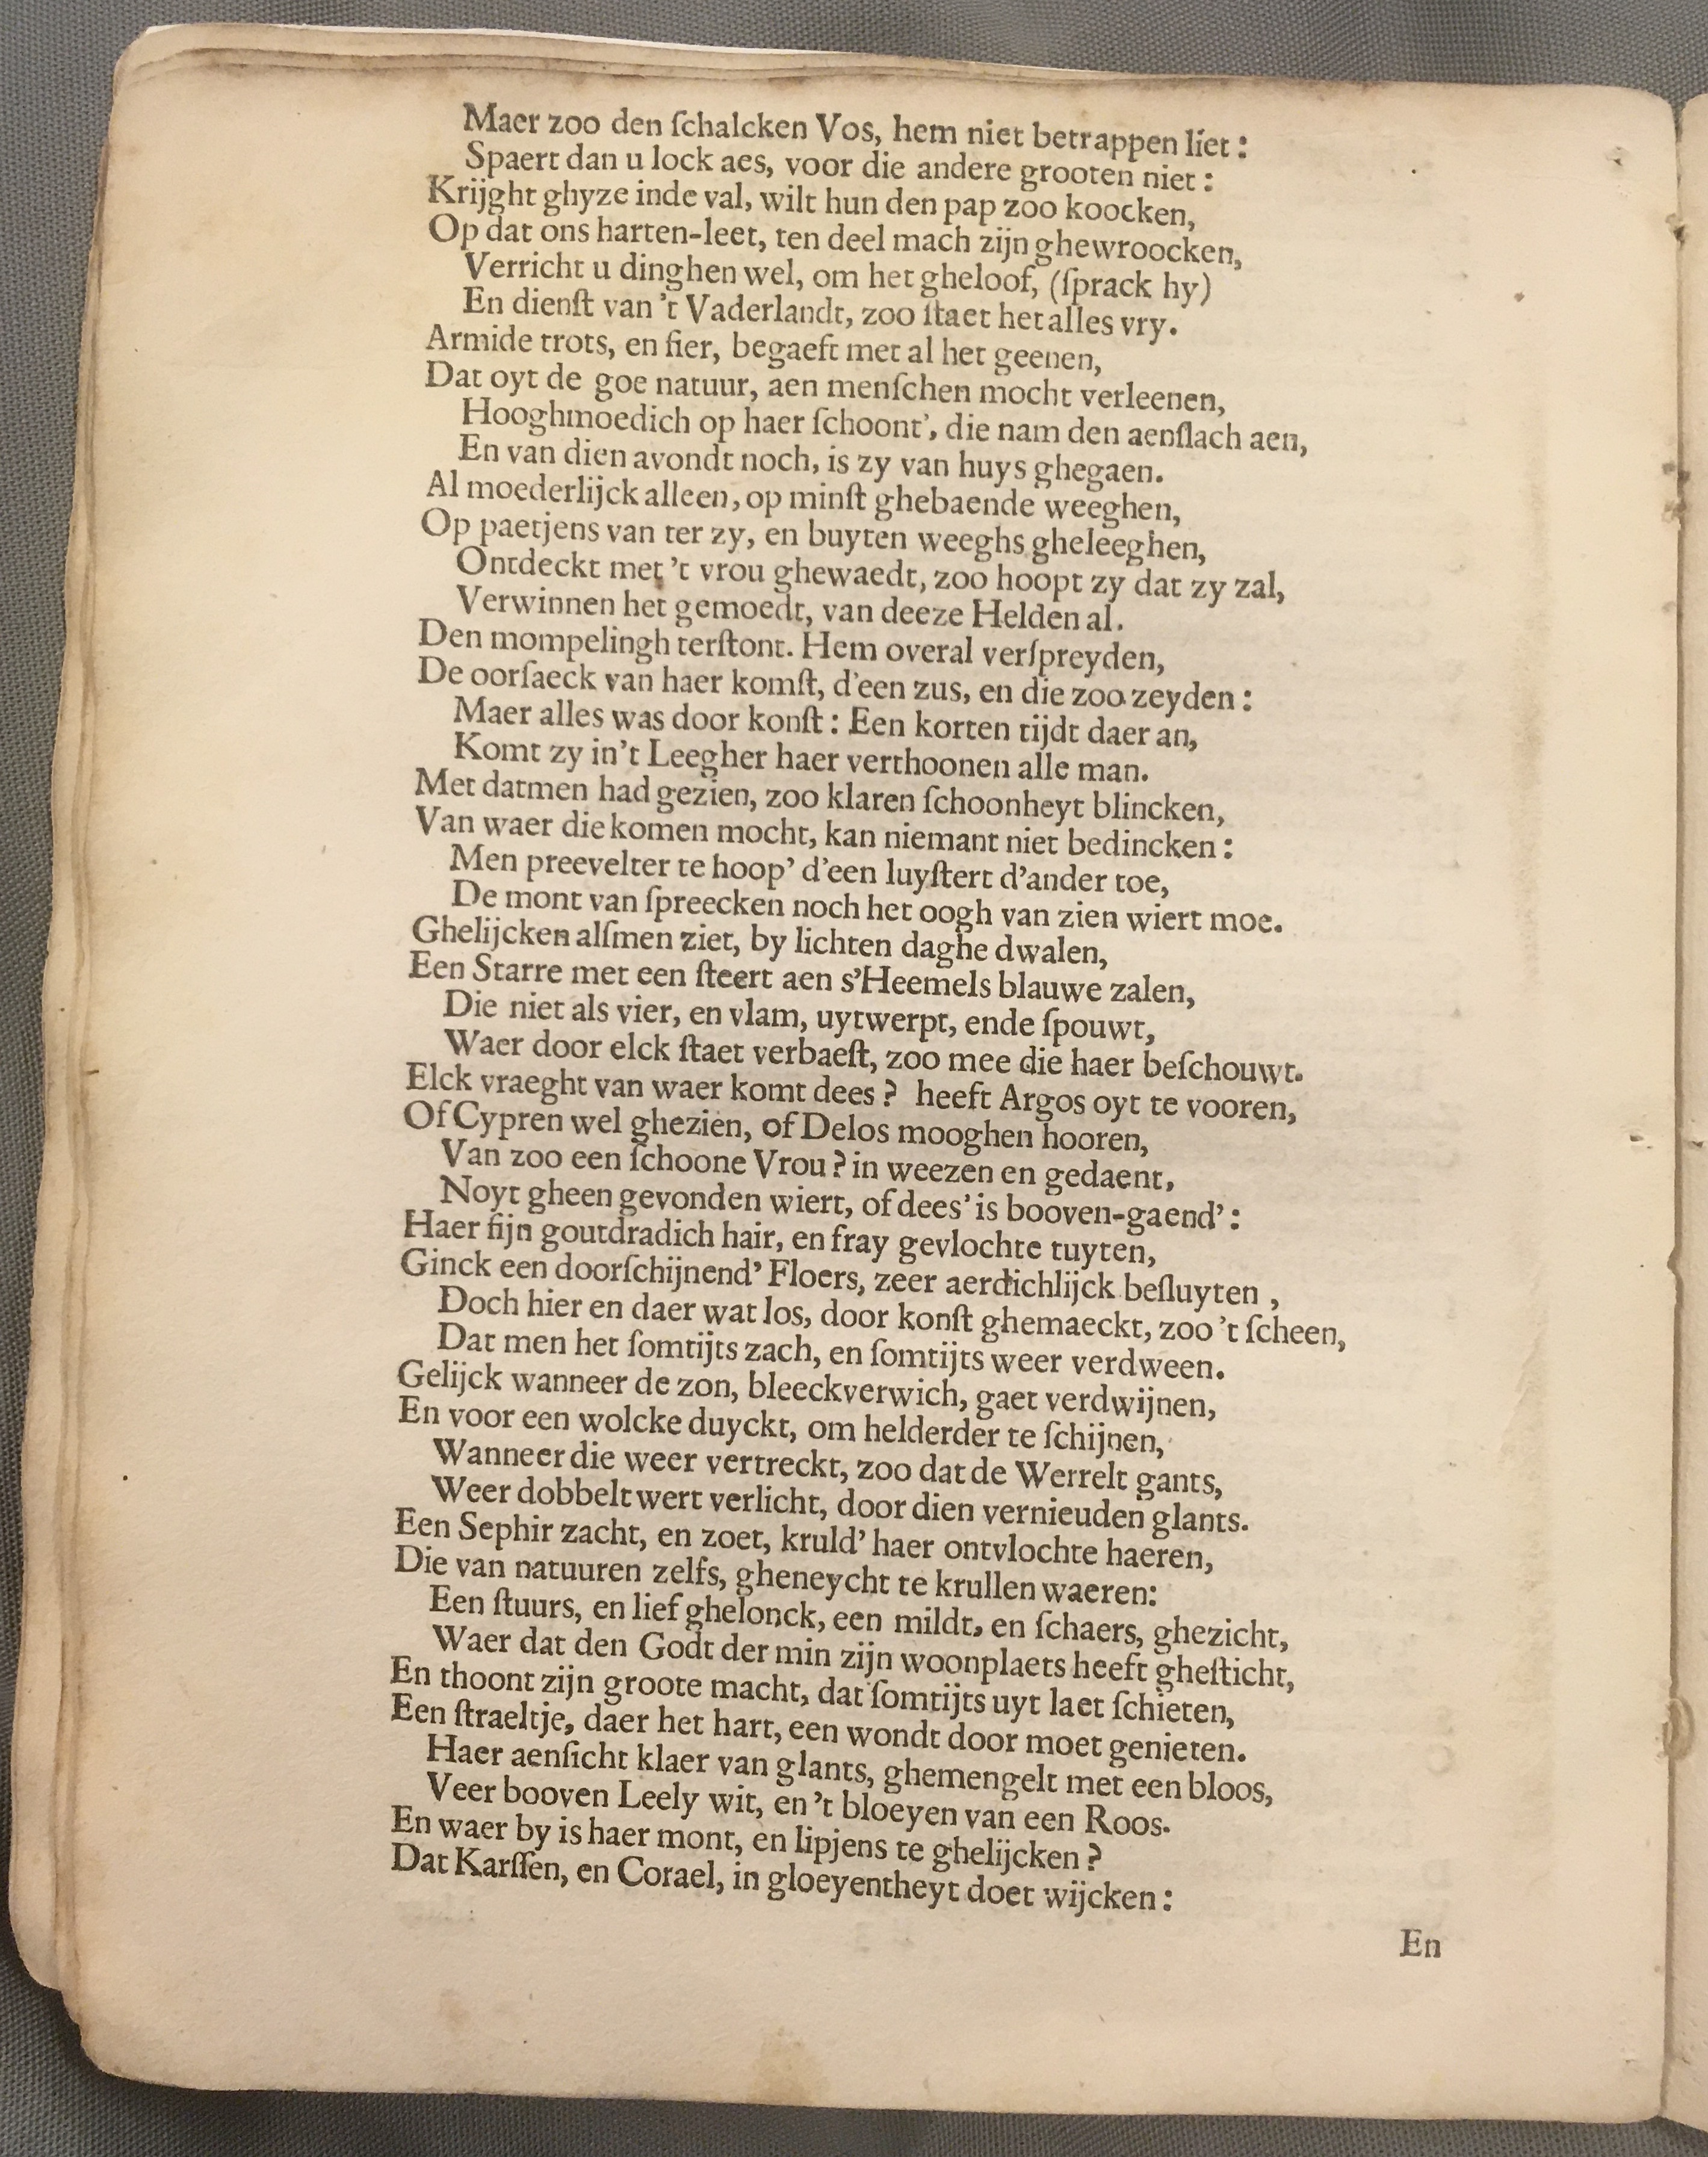 Maer zoo den ſchalcken Vos, hem niet betrappen liet:
Spaert dan u lock aes, voor die andere grooten niet:
Krijght ghyze inde val, wilt hun den pap zoo koocken,
Op dat ons harten-leet, ten deel mach zijn ghewroocken,
Verricht u dinghen wel, om het gheloof, (ſprack hy)
En dienſt van 't Vaderlandt, zoo ſtaet het alles vry.
Armide trots, en fier, begaeft met al het geenen,
Dat oyt de goe natuur, aen menſchen mocht verleenen,
Hooghmoedich op haer ſchoont', die nam den aenſlach aen,
En van dien avondt noch, is zy van huys ghegaen.
Al moederlijck alleen, op minſt ghebaende weeghen,
Op paetjens van ter zy, en buyten weeghs gheleeghen,
Ontdeckt met 't vrou ghewaedt, zoo hoopt zy dat zy zal,
Verwinnen het gemoedt, van deeze Helden al.
Den mompelingh terſtont. Hem overal verſpreyden,
De oorſaeck van haer komſt, d'een zus, en die zoo zeyden:
Maer alles was door konſt: Een korten tijdt daer an,
Komt zy in't Leegher haer verthoonen alle man.
Met datmen had gezien, zoo klaren ſchoonheyt blincken,
Van waer die komen mocht, kan niemant niet bedincken:
Men preevelter te hoop' d'een luyſtert d'ander toe,
De mont van ſpreecken noch het oogh van zien wiert moe.
Ghelijcken alſmen ziet, by lichten daghe dwalen,
Een Starre met een ſteert aen s'Heemels blauwe zalen,
Die niet als vier, en vlam, uytwerpt, ende ſpouwt,
Waer door elck ſtaet verbaeſt, zoo mee die haer beſchouwt.
Elck vraeght van waer komt dees? heeft Argos oyt te vooren,
Of Cypren wel ghezien, of Delos mooghen hooren,
Van zoo een ſchoone Vrou? in weezen en gedaent,
Noyt gheen gevonden wiert, of dees' is booven-gaend':
Haer fijn goutdradich hair, en fray gevlochte tuyten,
Ginck een doorſchijnend' Floers, zeer aerdichlijck beſluyten,
Doch hier en daer wat los, door konſt ghemaeckt, zoo 't ſcheen,
Dat men het ſomtijts zach, en ſomtijts weer verdween.
Gelijck wanneer de zon, bleeckverwich, gaet verdwijnen,
En voor een wolcke duyckt, om helderder te ſchijnen,
Wanneer die weer vertreckt, zoo dat de Werrelt gants,
Weer dobbelt wert verlicht, door dien vernieuden glants.
Een Sephir zacht, en zoet, kruld' haer ontvlochte haeren,
Die van natuuren zelfs, gheneycht te krullen waeren:
Een ſtuurs, en lief ghelonck, een mildt, en ſchaers, ghezicht,
Waer dat den Godt der min zijn woonplaets heeft gheſticht,
En thoont zijn groote macht, dat ſomtijts uyt laet ſchieten,
Een ſtraeltje, daer het hart, een wondt door moet genieten.
Haer aenſicht klaer van glants, ghemengelt met een bloos,
Veer booven Leely wit, en 't bloeyen van een Roos.
En waer by is haer mont, en lipjens te ghelijcken?
Dat Karſſen, en Corael, in gloeyentheyt doet wijcken:
En